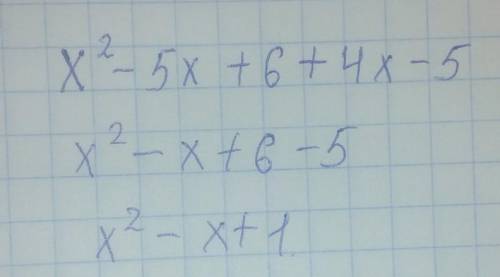 x² - 5x + 6 + 4x - 5
x² - x + 6 - 5
x² - x + 1